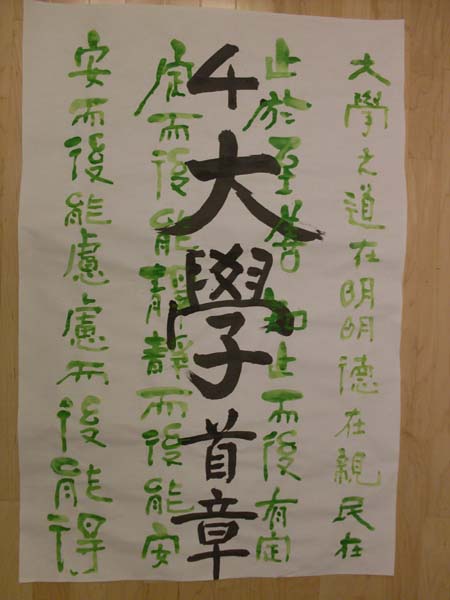 大學之道在明明德在親民在
止於至善知止而後有定
4大學首章
定而後能靜靜而後能安
安而後能慮慮而後能得